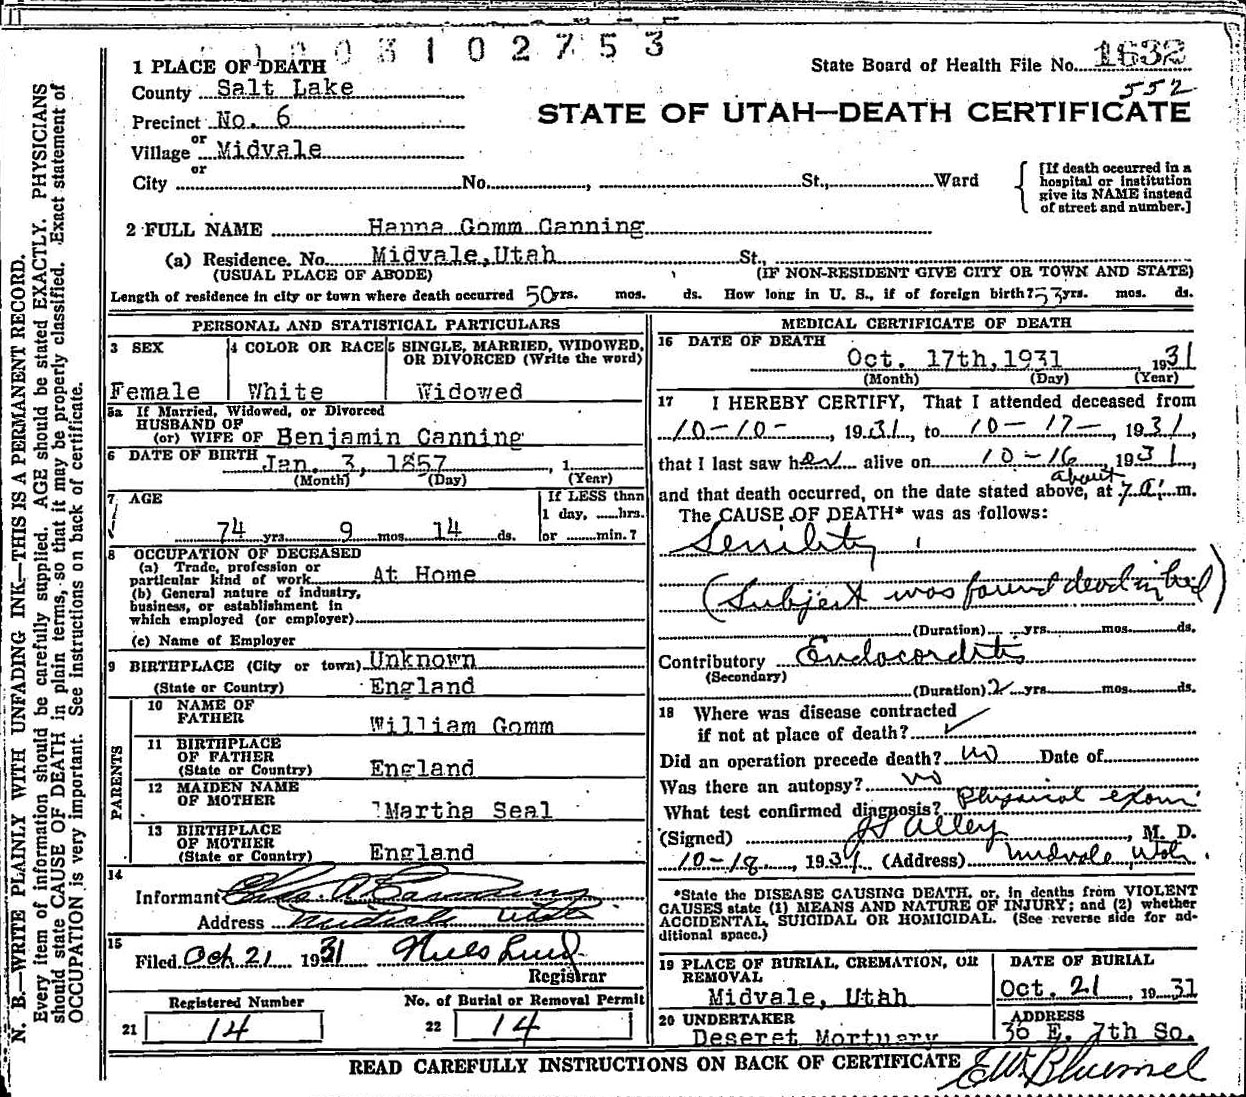 3 1 0 2 7 5 3
1 PLACE OF DEATH
State Board of Health File No. 1632
552
County Salt Lake
STATE OF UTAH—DEATH CERTIFICATE
Precinct No. 6
or
Village Midvale
or
City No. , St., Ward
[If death occurred in a
hospital or institution
give its NAME instead
of street and number.]
2 FULL NAME Hanna Gomm Canning
(a) Residence. No. Midvale,Utah St.,
(USUAL PLACE OF ABODE) (IF NON-RESIDENT GIVE CITY OR TOWN AND STATE)
Length of residence in city or town where death occurred 50 yrs. mos. ds. How long in U. S., if of foreign birth? 53 yrs. mos. ds.
PERSONAL AND STATISTICAL PARTICULARS
3 SEX
Female
4 COLOR OR RACE
White
5 SINGLE, MARRIED, WIDOWED,
OR DIVORCED (Write the word)
Widowed
5a If Married, Widowed, or Divorced
HUSBAND OF
(or) WIFE OF Benjamin Canning
6 DATE OF BIRTH
Jan. 3, 1857, 1
(Month) (Day) (Year)
7 AGE
74 yrs. 9 mos. 14 ds.
If LESS than
1 day, hrs.
or min.?
8 OCCUPATION OF DECEASED
(a) Trade, profession or
particular kind of work At Home
(b) General nature of industry,
business, or establishment in
which employed (or employer)
(c) Name of Employer
9 BIRTHPLACE (City or town) Unknown
(State or Country) England
PARENTS
10 NAME OF
FATHER William Gomm
11 BIRTHPLACE
OF FATHER
(State or Country) England
12 MAIDEN NAME
OF MOTHER Martha Seal
13 BIRTHPLACE
OF MOTHER
(State or Country) England
14
Informant Chas A Canning
Address Midvale Utah
15
Filed Oct 21 1931 Niels Lind
Registrar
Registered Number
21 14
No. of Burial or Removal Permit
22 14
MEDICAL CERTIFICATE OF DEATH
16 DATE OF DEATH
Oct. 17th,1931 1931
(Month) (Day) (Year)
17 I HEREBY CERTIFY, That I attended deceased from
10-10-, 1931, to 10-17-, 1931,
that I last saw her alive on 10-16, 1931,
about
and that death occurred, on the date stated above, at 7 a. m.
The CAUSE OF DEATH* was as follows:
Senility
(Subject was found dead in bed)
(Duration) yrs. mos. ds.
Contributory Endocarditis
(Secondary)
(Duration) 2 yrs. mos. ds.
18 Where was disease contracted
if not at place of death?
Did an operation precede death? no Date of
Was there an autopsy? no
What test confirmed diagnosis? Physical exam
(Signed) J S Alley, M. D.
10-18, 1931, (Address) Midvale, Utah.
*State the DISEASE CAUSING DEATH, or, in deaths from VIOLENT
CAUSES state (1) MEANS AND NATURE OF INJURY; and (2) whether
ACCIDENTAL, SUICIDAL OR HOMICIDAL. (See reverse side for ad-
ditional space.)
19 PLACE OF BURIAL, CREMATION, OR
REMOVAL
Midvale, Utah
DATE OF BURIAL
Oct. 21, 1931
20 UNDERTAKER
Deseret Mortuary
ADDRESS
36 E. 7th So.
READ CAREFULLY INSTRUCTIONS ON BACK OF CERTIFICATE
N. B.—WRITE PLAINLY WITH UNFADING INK—THIS IS A PERMANENT RECORD.
Every item of information should be carefully supplied. AGE should be stated EXACTLY. PHYSICIANS
should state CAUSE OF DEATH in plain terms, so that it may be properly classified. Exact statement of
OCCUPATION is very important. See instructions on back of certificate.